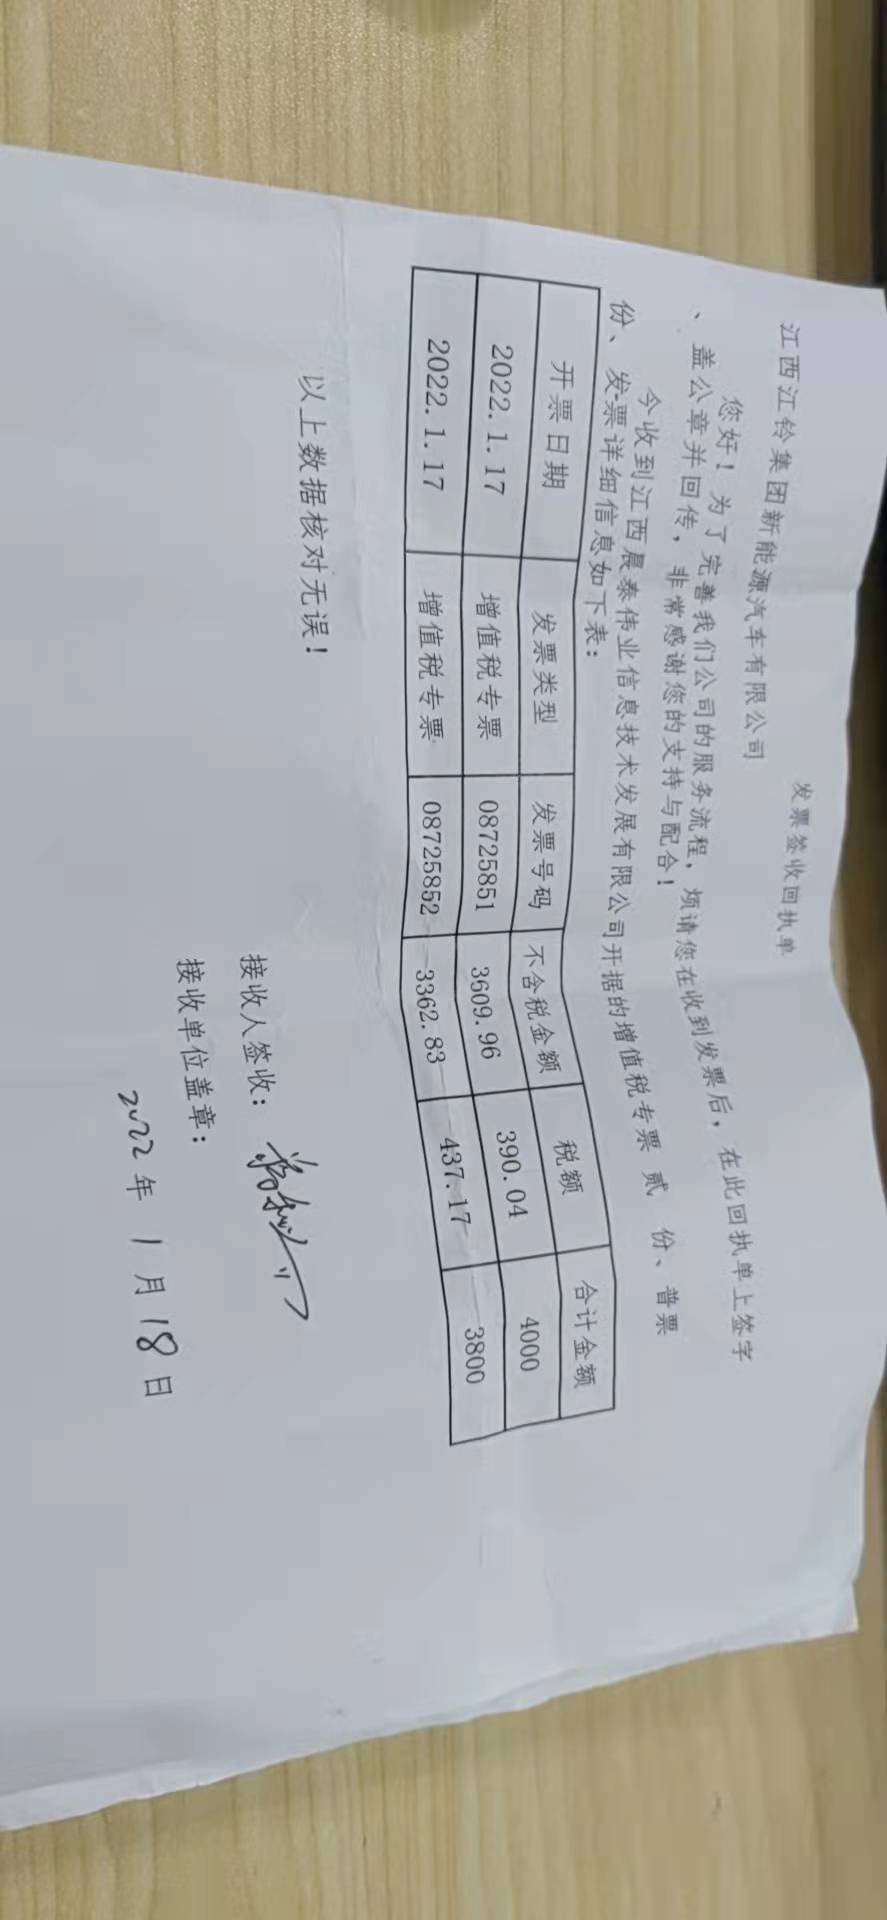 发票签收回执单
江西江铃集团新能源汽车有限公司
您好！为了完善我们公司的服务流程，烦请您在收到发票后，在此回执单上签字
、盖公章并回传，非常感谢您的支持与配合！
今收到江西晨泰伟业信息技术发展有限公司开据的增值税专票 贰 份、普票
份、发票详细信息如下表：
开票日期 发票类型 发票号码 不含税金额 税额 合计金额
2022.1.17 增值税专票 08725851 3609.96 390.04 4000
2022.1.17 增值税专票 08725852 3362.83 437.17 3800
以上数据核对无误！
接收人签收：
接收单位盖章：
2022年1月18日